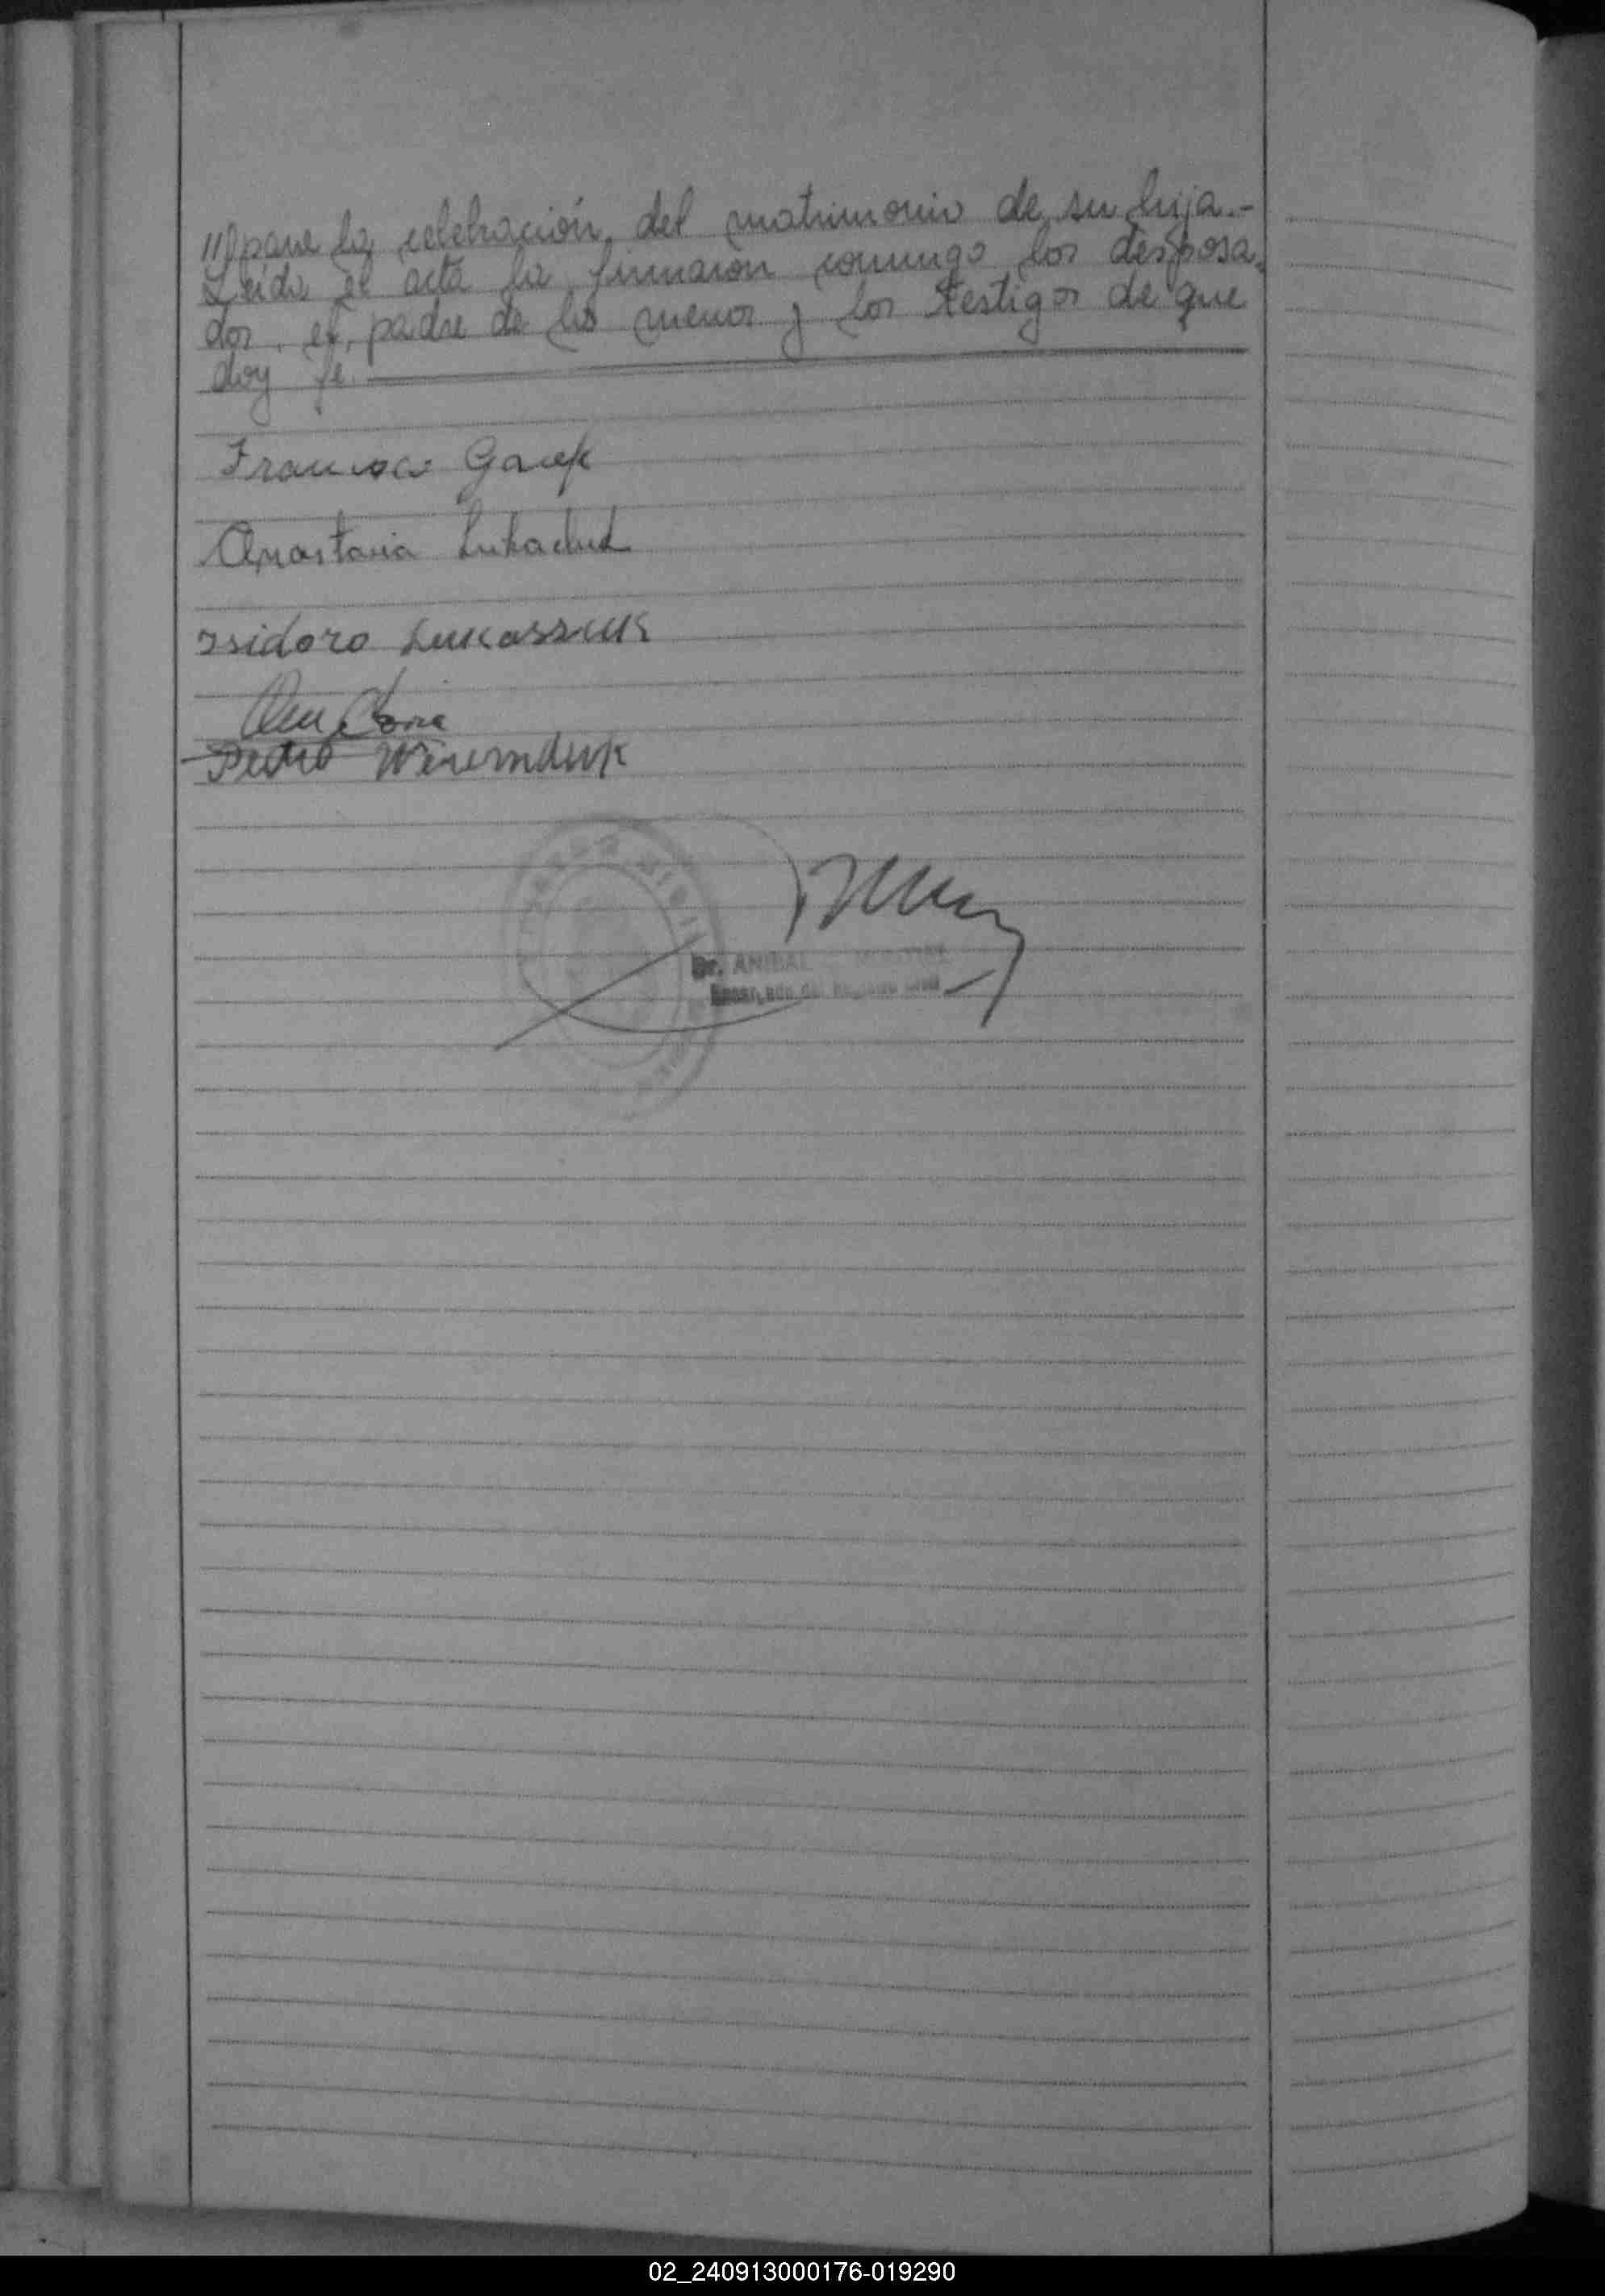 /// para la celebración del matrimonio de su hija.-
Leída el acta la firmaron conmigo los desposa-
dos, el padre de la menor y los testigos de que
doy fe.
Francisco Gacek
Anastasia Lukachuk
Isidoro Lukasszuk
Pedro
Dr. ANIBAL
Encargado del Registro Civil
02_240913000176-019290